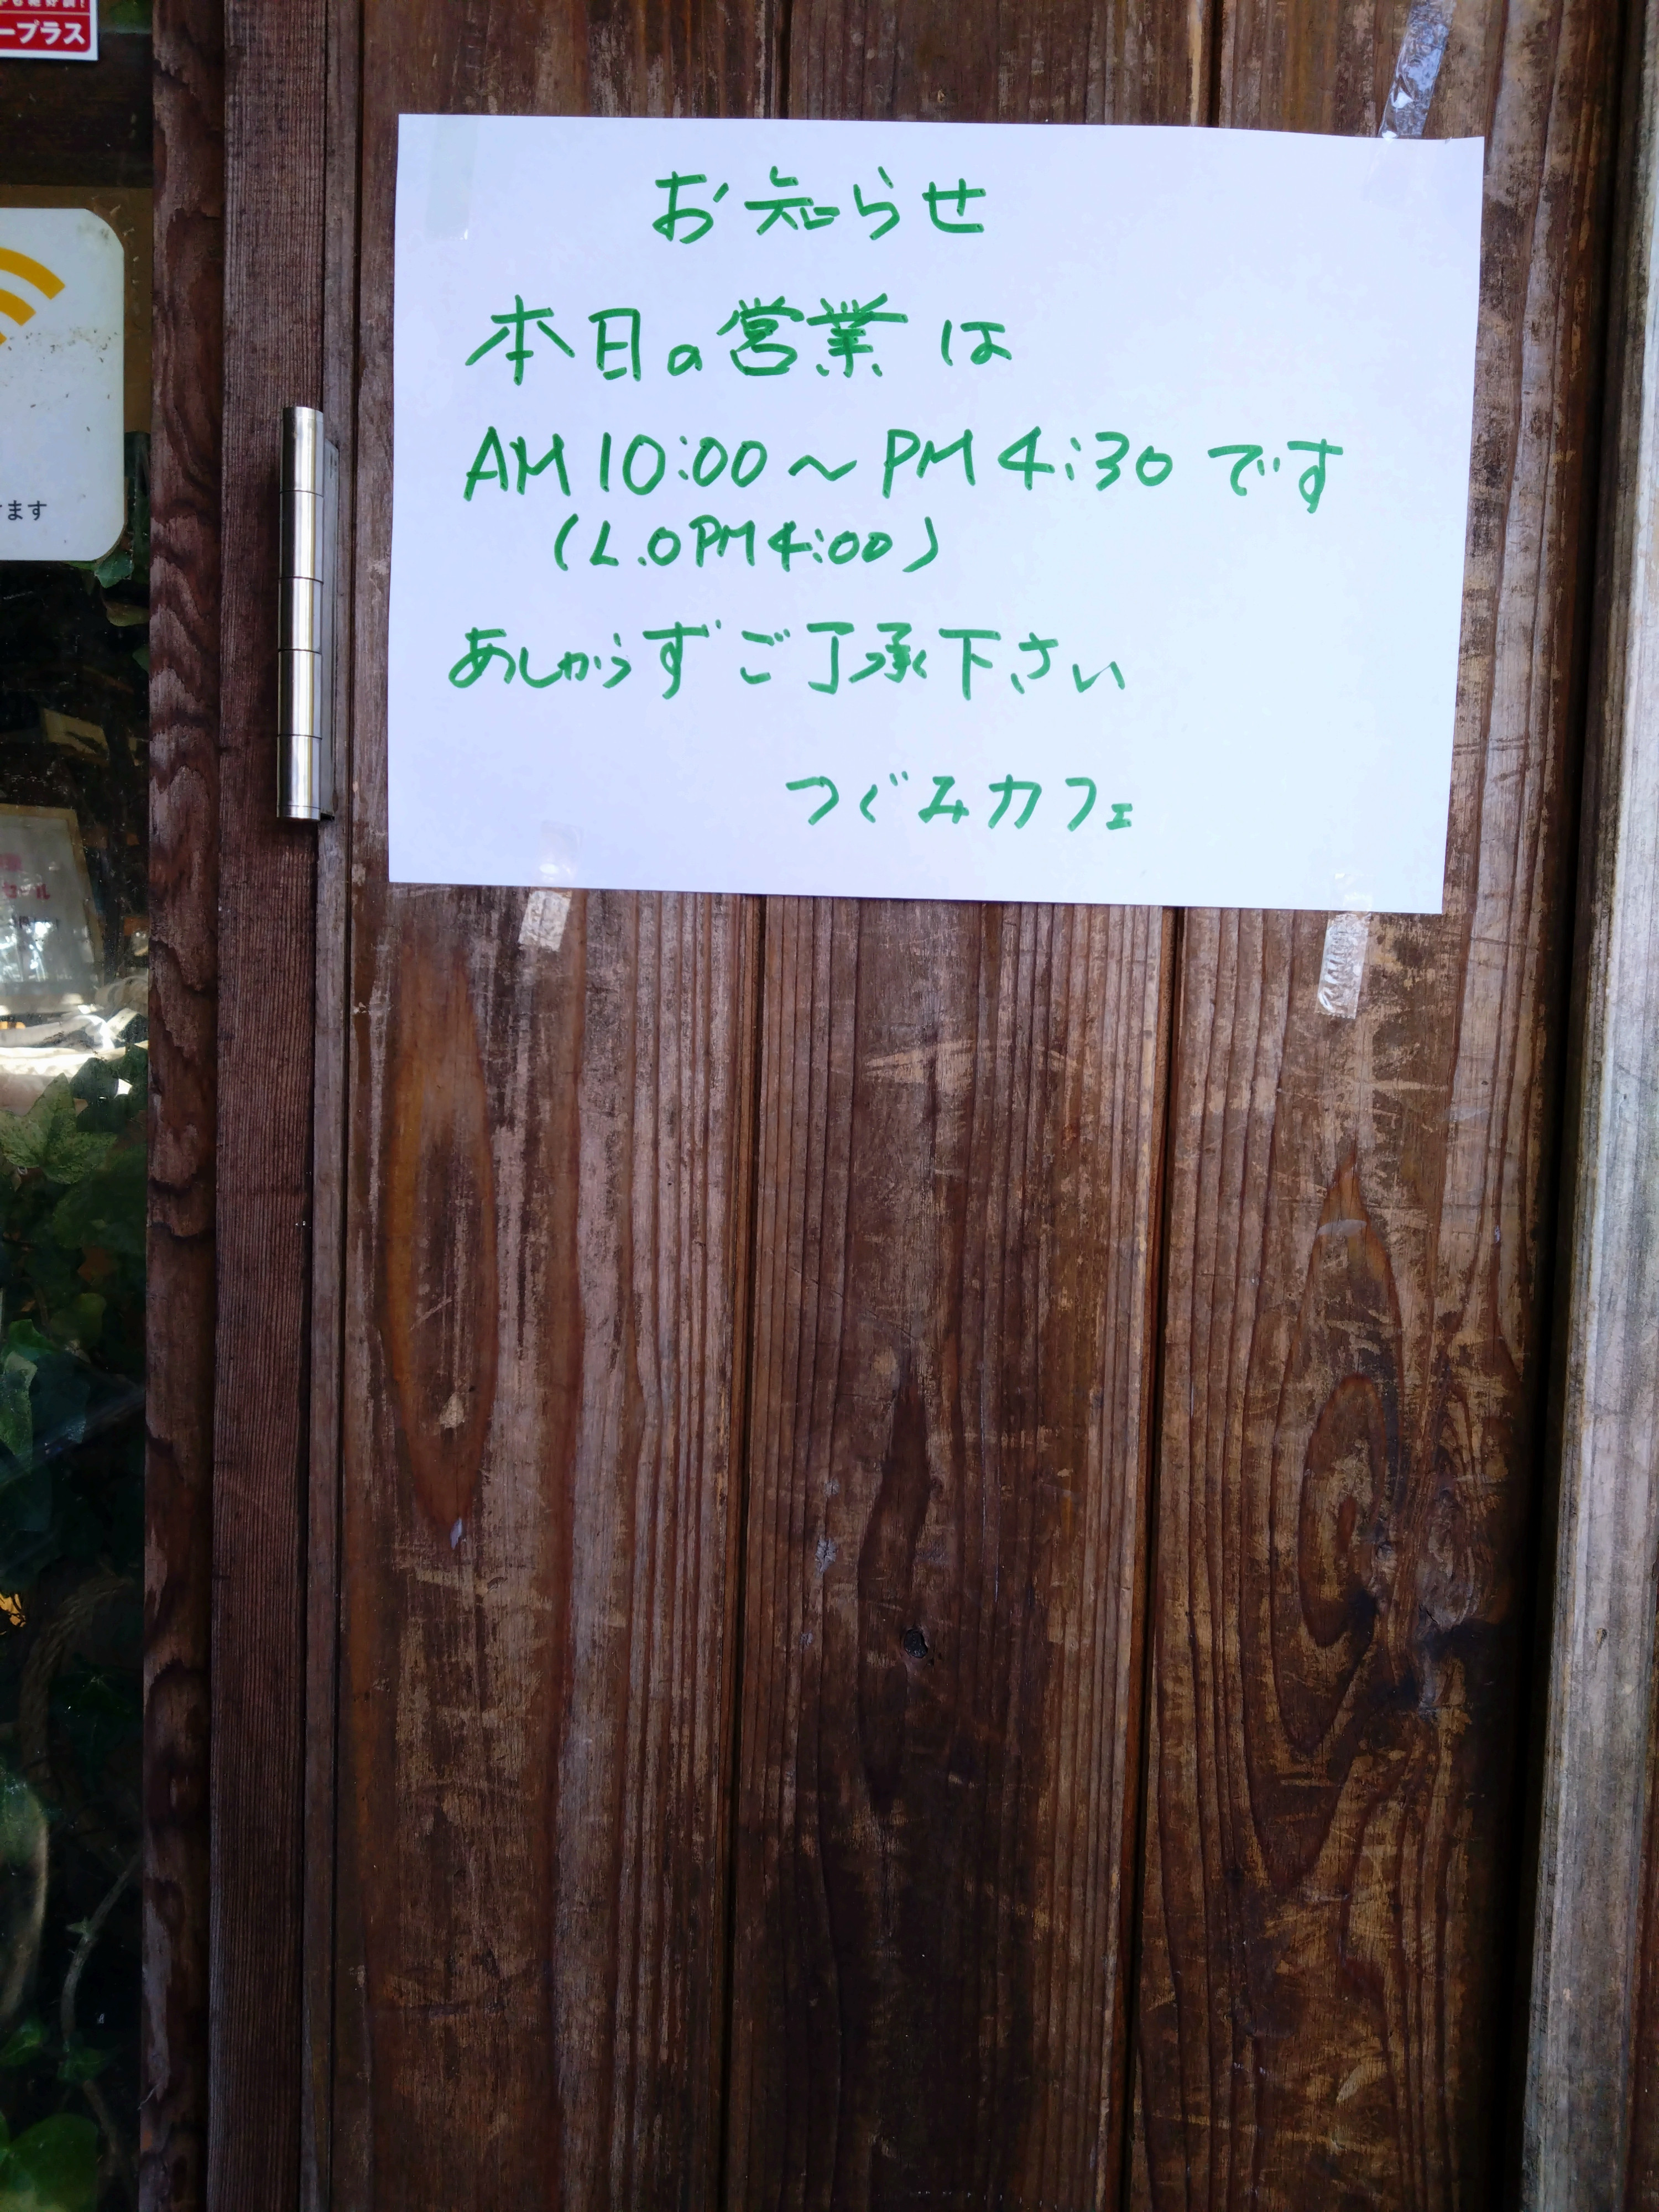 ープラス
けます
お知らせ
本日の営業は
AM10:00〜PM4:30です
(L.OPM4:00)
あしからずご了承下さい
つぐみカフェ